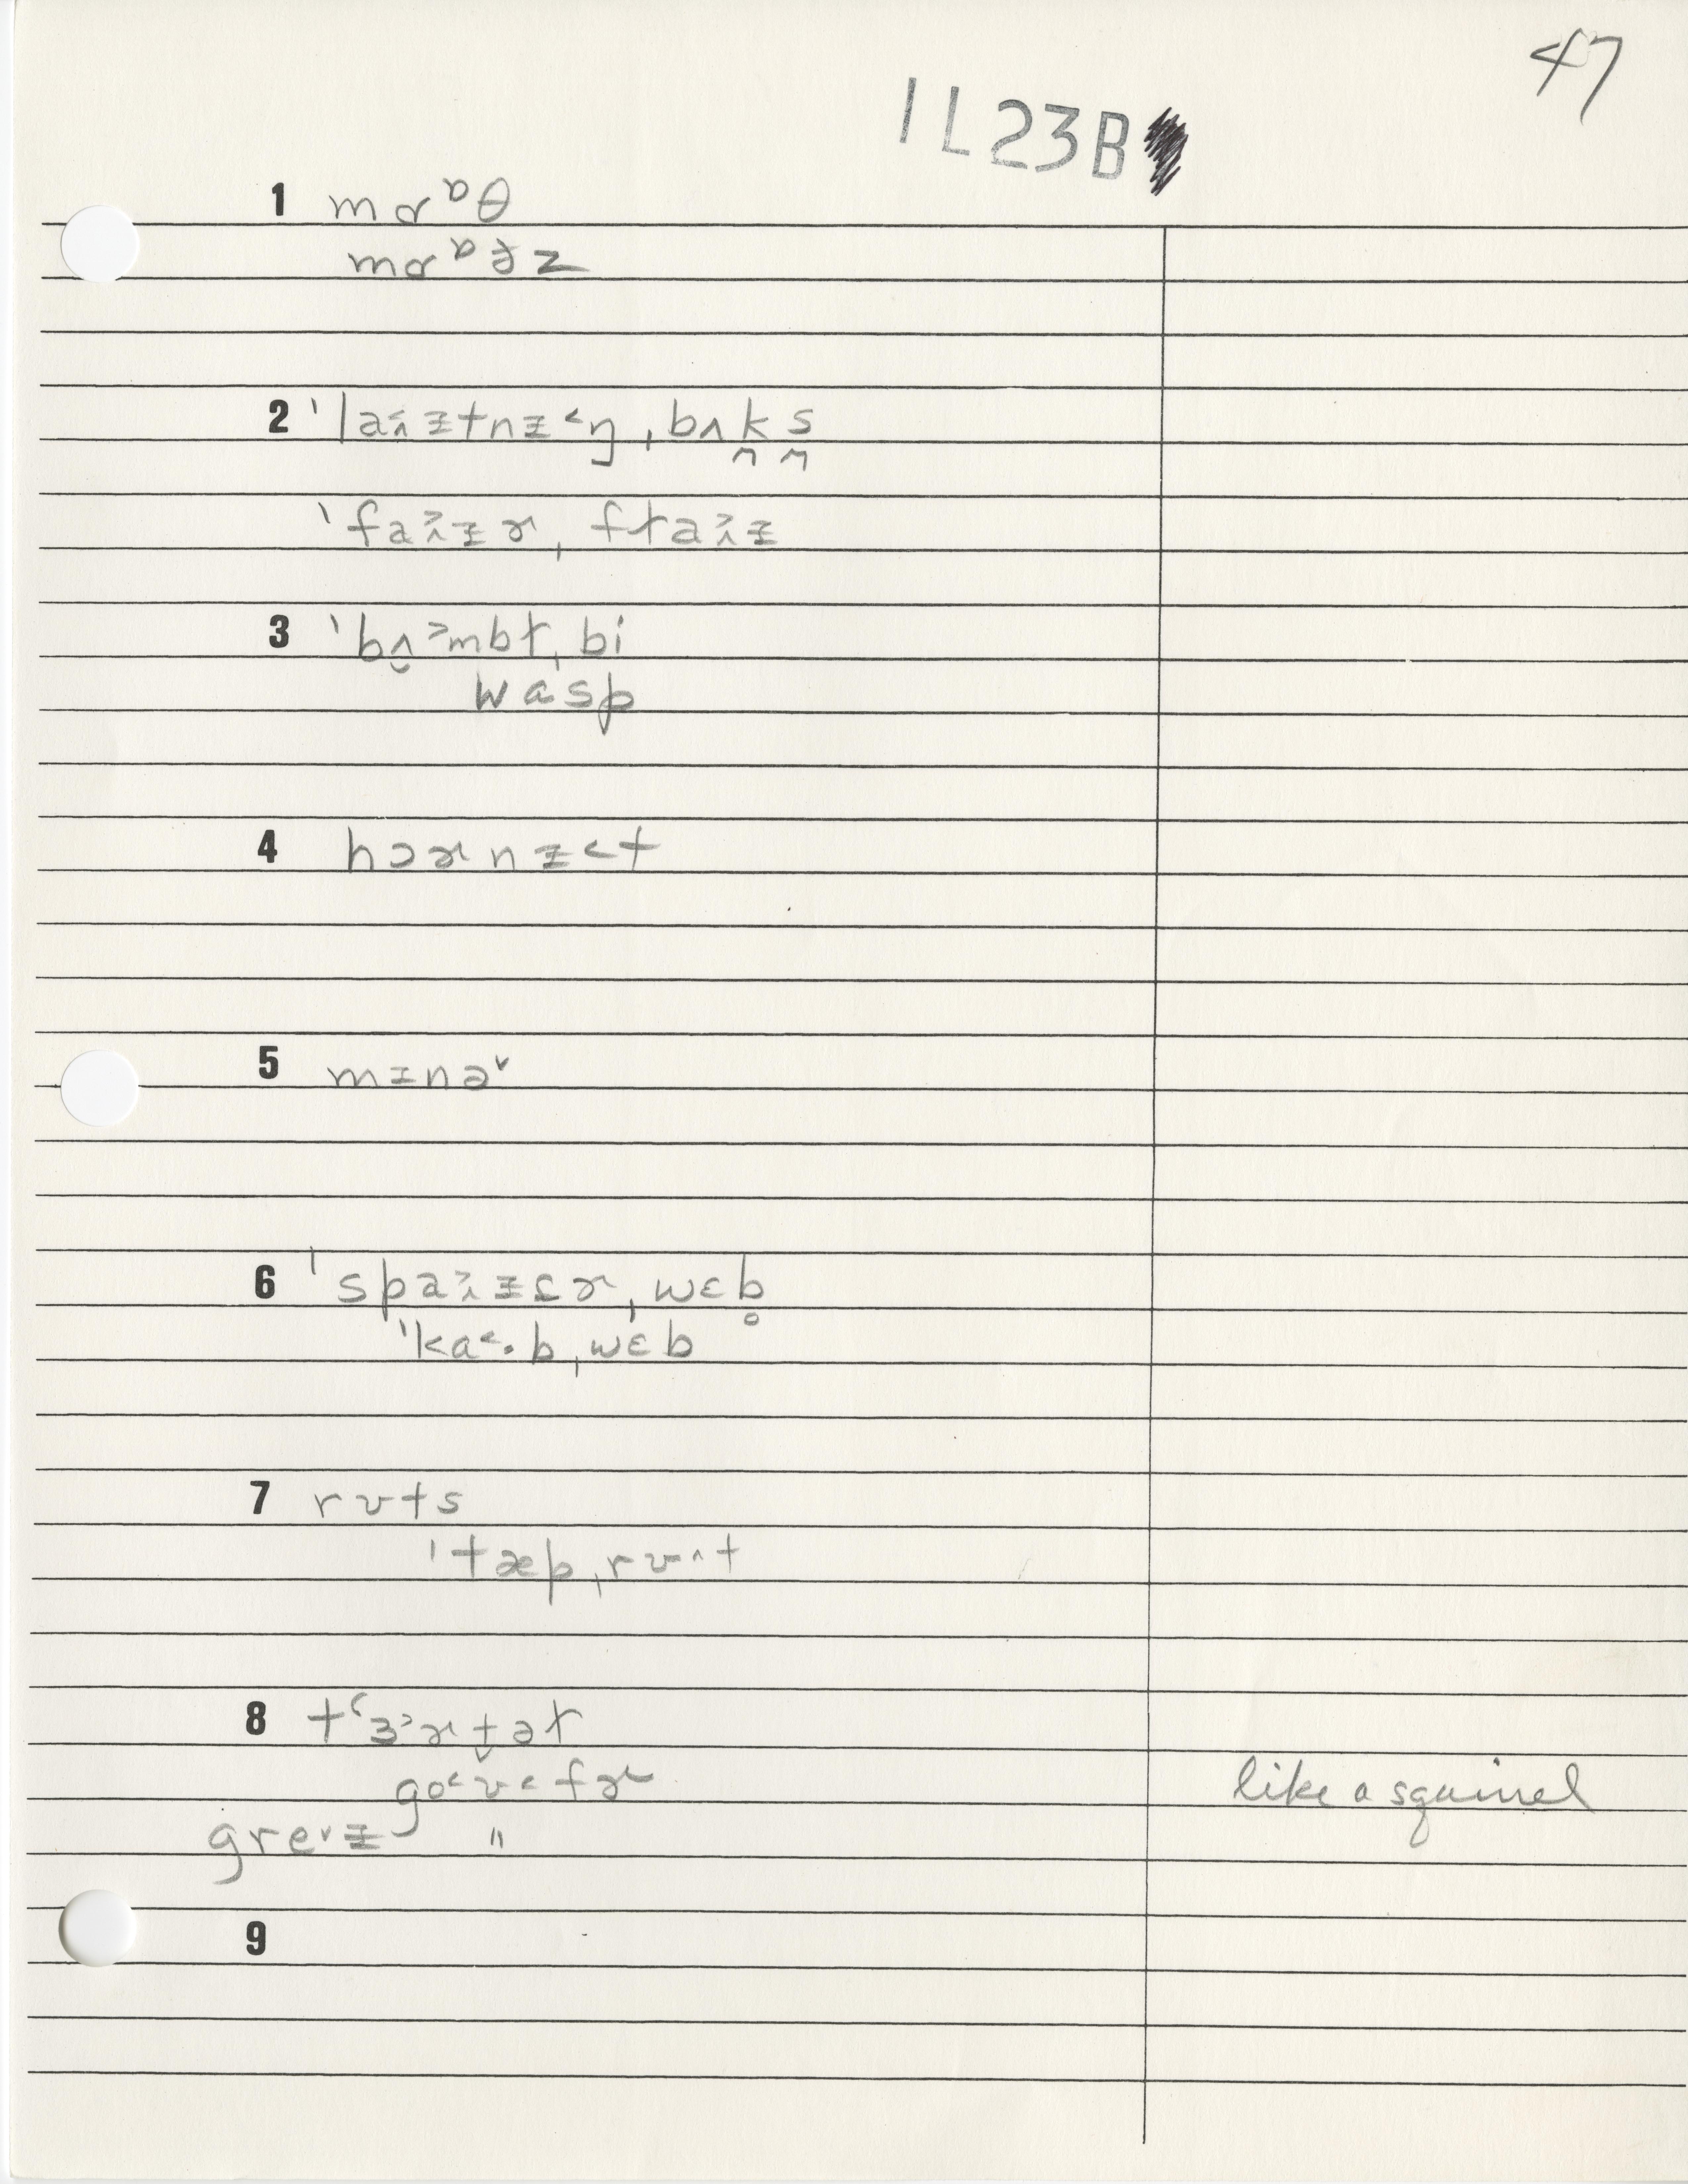 47
1 L 23 B
1 mɑᶛθ
mɑᶛð̵z
2 ˈlaɪ˂tnɪ˂ŋˌbʌk̬s̬
ˈfaɪ˃ɚˌflaɪ˃
3 ˈbʌ˃mbɫˌbi
wasp
4 hɔɚnɪ˂t
5 mɪnə˅
6 ˈspaɪ˃ɾɚˌwɛb̥
ˈka˂·bˌwɛb
7 rʊts
ˈtæpˌrʊ˄t
8 tʻɜ˃ɚt̬əɫ
go˂ʊ˂fɚ
like a squirrel
gre˅ɪ "
9